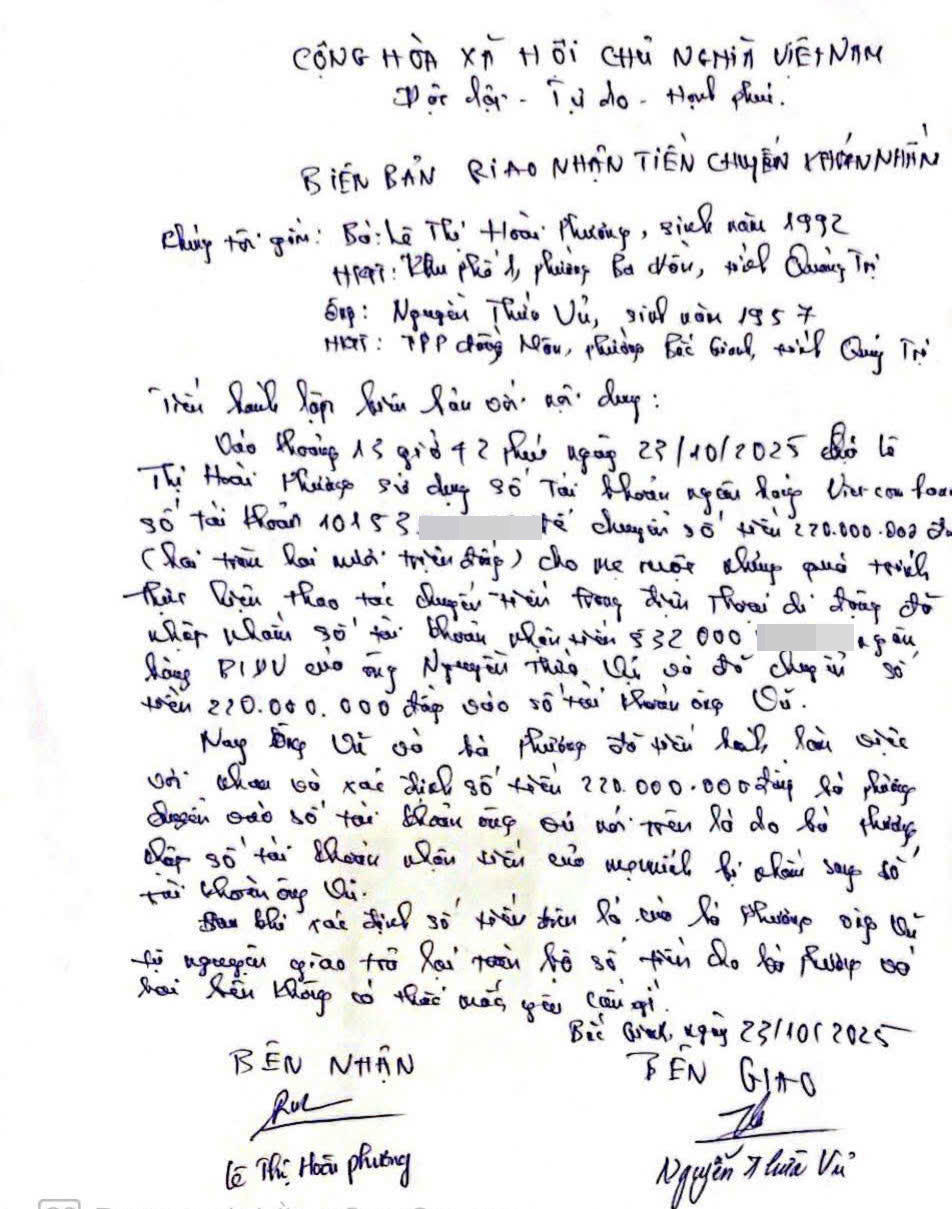 CỘNG HÒA XÃ HỘI CHỦ NGHĨA VIỆT NAM
Độc lập - Tự do - Hạnh phúc.
BIÊN BẢN GIAO NHẬN TIỀN CHUYỂN KHOẢN NHẦM
Chúng tôi gồm: Bà: Lê Thị Hoài Phương, sinh năm 1992
HKTT: Khu phố 1, phường Ba Đồn, tỉnh Quảng Trị
Ông: Nguyễn Thừa Vũ, sinh năm 1957
HKTT: TDP, phường Bắc Gianh, tỉnh Quảng Trị
Tiến hành lập biên bản với nội dung:
Vào khoảng 13 giờ 42 phút ngày 23/10/2025 chị Lê
Thị Hoài Phương sử dụng số tài khoản ngân hàng Vietcombank
số tài khoản 10153 để chuyển số tiền 220.000.000 đ
(hai trăm hai mươi triệu đồng) cho mẹ ruột nhưng quá trình
thực hiện thao tác chuyển tiền trong điện thoại di động đã
nhập nhầm số tài khoản nhận tiền 532000 ngân
hàng BIDV của ông Nguyễn Thừa Vũ và đã chuyển số
tiền 220.000.000 đồng vào số tài khoản ông Vũ.
Nay ông Vũ và bà Phương đã tiến hành làm việc
với nhau và xác định số tiền 220.000.000 đồng bà Phương
chuyển vào số tài khoản ông Vũ nói trên là do bà Phương
nhập số tài khoản nhận tiền của mẹ mình bị nhầm sang số
tài khoản ông Vũ.
Sau khi xác định số tiền trên là của bà Phương ông Vũ
tự nguyện giao trả lại toàn bộ số tiền cho bà Phương và
hai bên không có thắc mắc, yêu cầu gì.
Bắc Gianh, ngày 23/10/2025
BÊN NHẬN
BÊN GIAO
Lê Thị Hoài Phương
Nguyễn Thừa Vũ